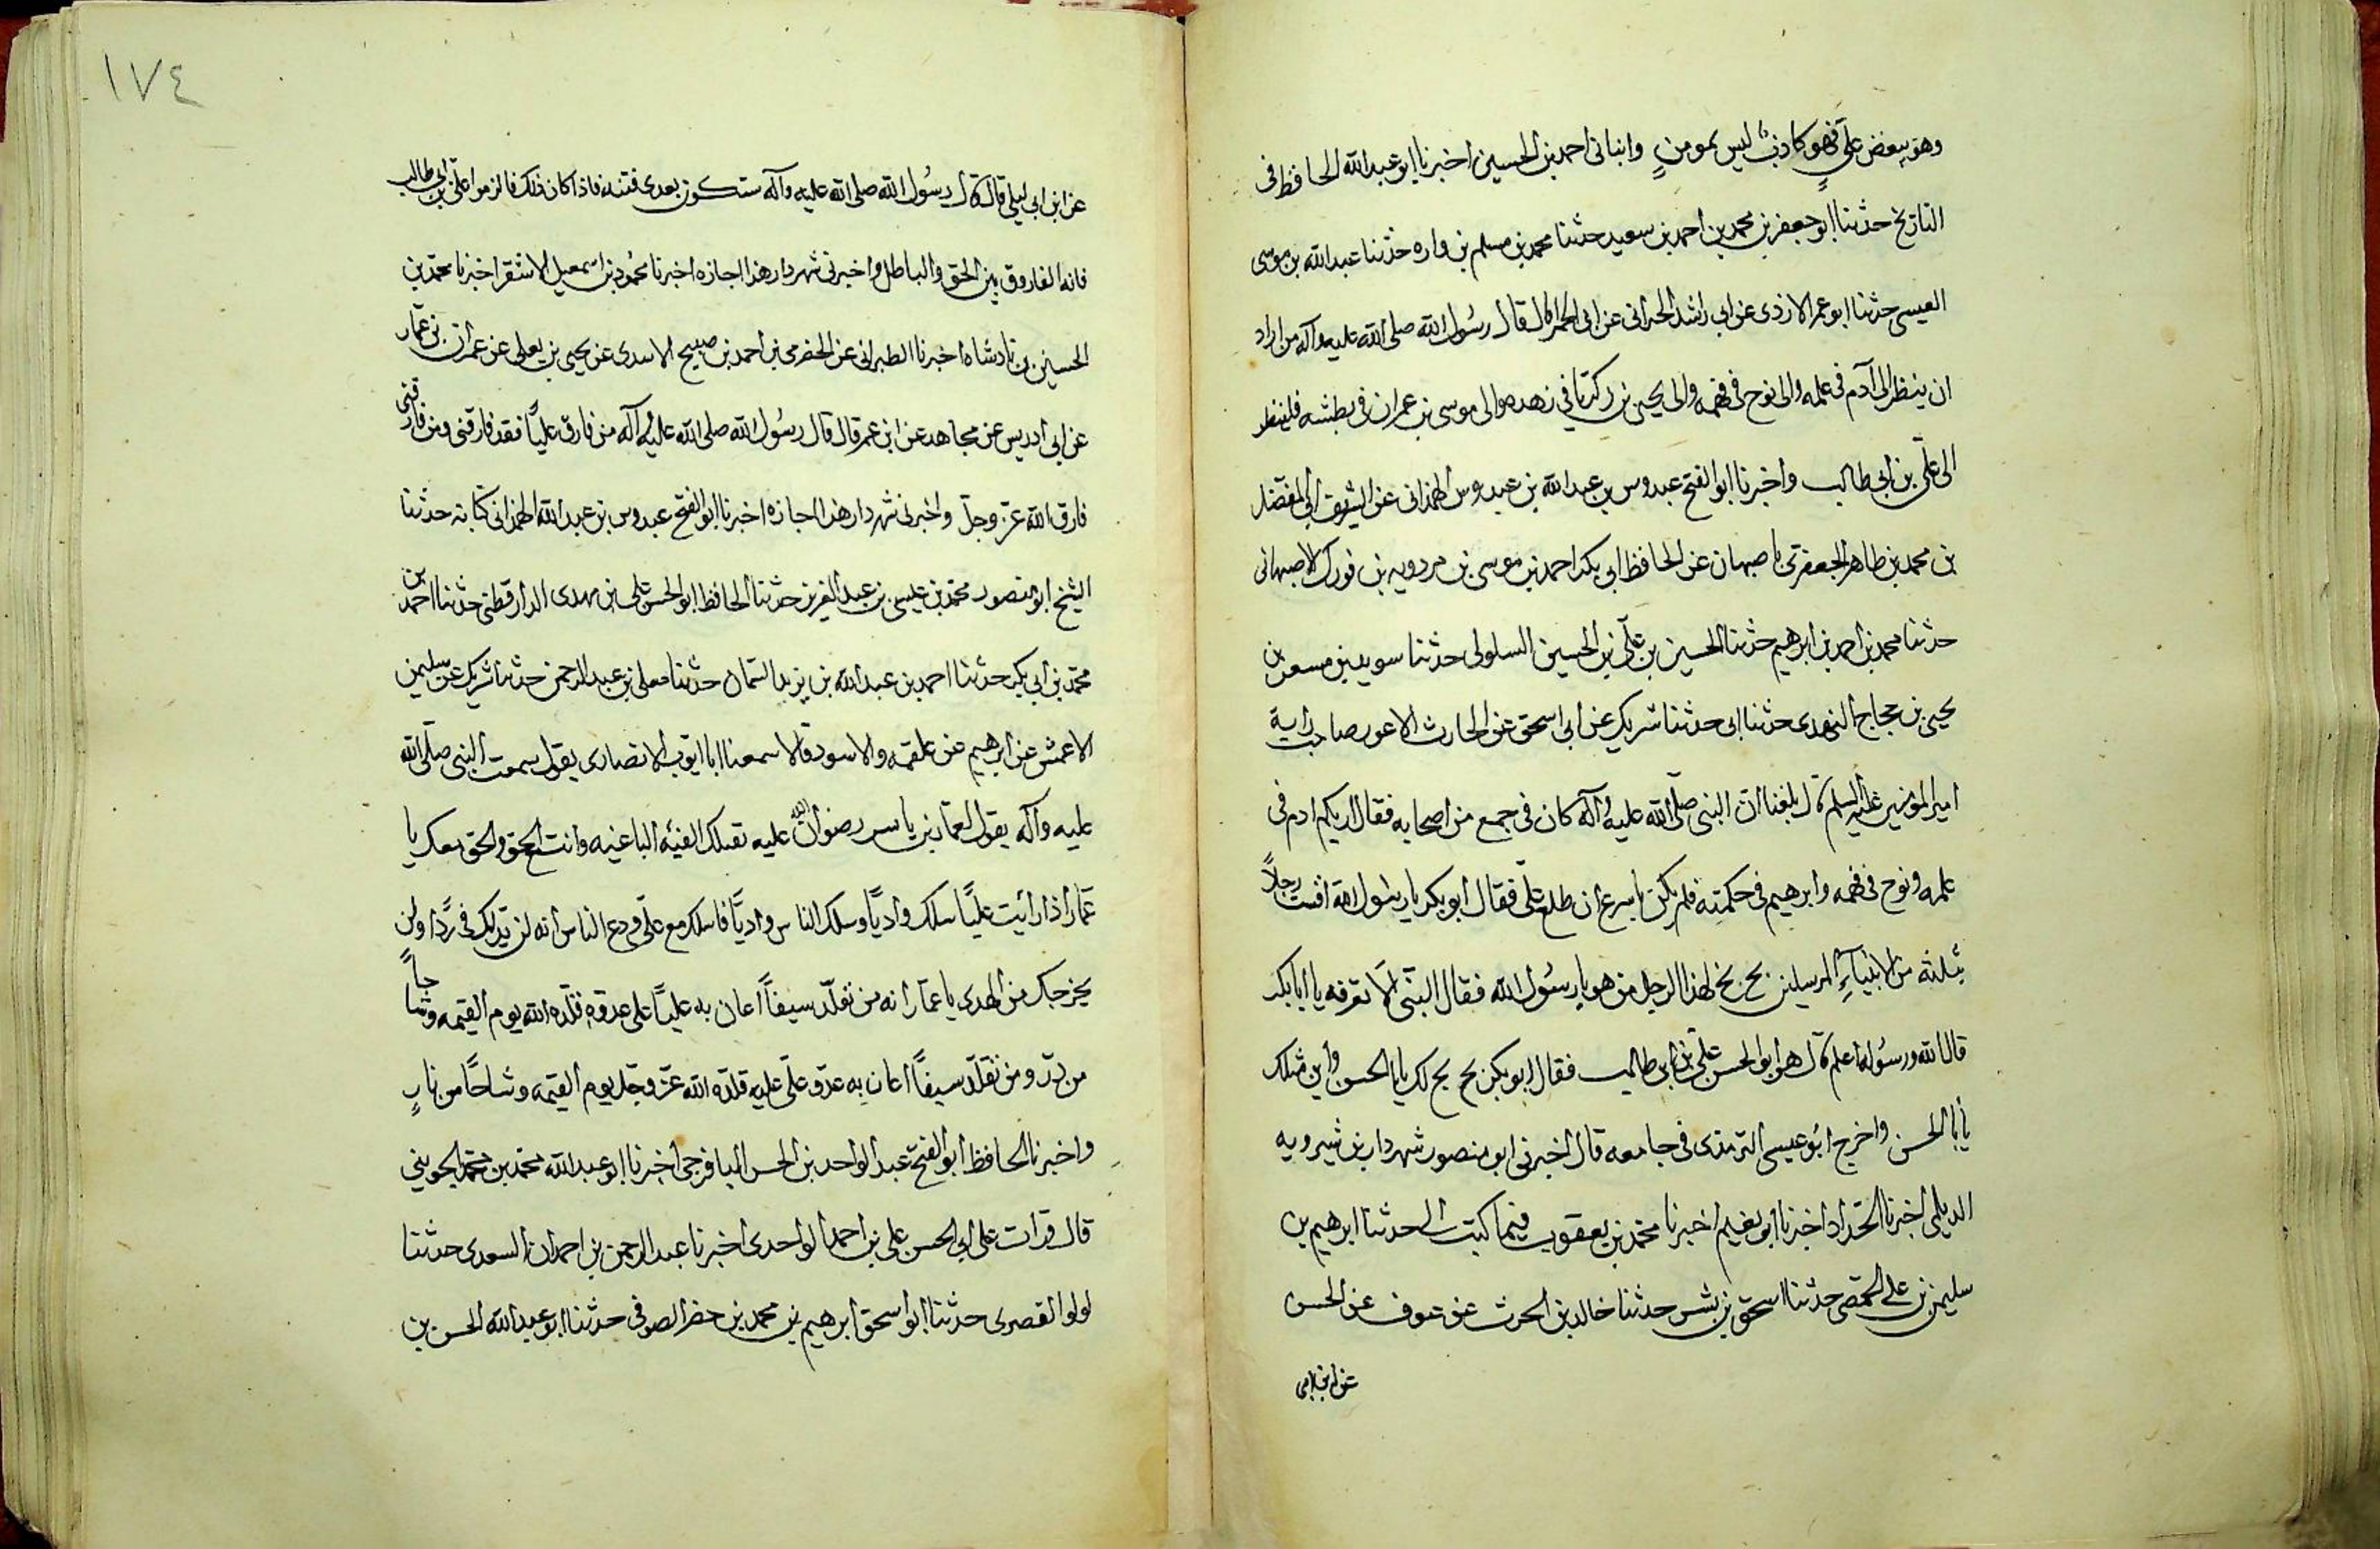 وهو يبغض علي فهو كاذب ليس بمومن وانبانى احمد بن الحسين اخبرنا ابو عبدالله الحافظ فى
التاريخ حدثنا ابو جعفر بن محمد بن احمد بن سعيد حدثنا محمد بن مسلم بن واره حدثنا عبدالله بن موسى
العبسى حدثنا ابو عمر الازدى عن ابى راشد الحرانى عن ابى الحمرا قال قال رسول الله صلى الله عليه وآله من اراد
ان ينظر الى آدم فى علمه والى نوح فى فهمه والى يحيى بن زكريا فى زهده والى موسى بن عمران فى بطشه فلينظر
الى على بن ابى طالب واخبرنا ابو الفتح عبدوس بن عبدالله بن عبدوس الهمدانى عن الشريف ابى المفضل
بن محمد بن طاهر الجعفرى باصبهان عن الحافظ ابى بكر احمد بن موسى بن مردويه بن فورك الاصبهانى
حدثنا محمد بن احمد بن ابرهيم حدثنا الحسين بن على بن الحسين السلولى حدثنا سويد بن مسعر بن
يحيى بن حجاج النهدى حدثنا ابى حدثنا شريك عن ابى اسحق عن الحارث الاعور صاحب راية
امير المؤمنين عليه السلم قال بلغنا ان النبى صلى الله عليه وآله كان فى جمع من اصحابه فقال اريكم ادم فى
علمه ونوح فى فهمه وابرهيم فى حكمته فلم يكن باسرع ان طلع على فقال ابو بكر يا رسول الله اقست رجلاً
بثلثه من الانبياء المرسلين بخ بخ لهذا الرجل من هو يا رسول الله فقال النبى الا تعرفه يا ابا بكر
قال الله ورسوله اعلم قال هو ابو الحسن على بن ابى طالب فقال ابو بكر بخ بخ لك يا ابا الحسن واين مثلك
يا ابا الحسن واخرج ابو عيسى الترمذى فى جامعه قال اخبرنى ابو منصور شهردار بن شيرويه
الديلمى اخبرنا الحداد اخبرنا ابو نعيم اخبرنا محمد بن يعقوب فيما كتب الى حدثنا ابرهيم بن
سليمن بن على الحمصى حدثنا اسحق بن بشر حدثنا خالد بن الحرث عن عوف عن الحسن
عن ابن ابى
١٧٤
عن ابن ابى ليلى قال قال رسول الله صلى الله عليه وآله ستكون بعدى فتنه فاذا كان ذلك فالزموا على بن ابى طالب
فانه الفاروق بين الحق والباطل واخبرنى شهردار هذا اجازه اخبرنا محمود بن اسمعيل الاشقر اخبرنا محمد بن
الحسين بن نادشاه اخبرنا الطبرانى عن الحضرمى بن احمد بن صبيح الاسدى عن يحيى بن يعلى عن عمران بن عمار
عن ابى ادريس عن مجاهد عن ابن عمر قال قال رسول الله صلى الله عليه وآله من فارق علياً فقد فارقنى ومن فارقنى
فارق الله عز وجل واخبرنى شهردار هذا اجازه اخبرنا ابو الفتح عبدوس بن عبدالله الهمدانى كتابة حدثنا
الشيخ ابو منصور محمد بن عيسى بن عبد العزيز حدثنا الحافظ ابو الحسن على بن مهدى الدارقطنى حدثنا احمد بن
محمد بن ابى بكر حدثنا احمد بن عبدالله بن يزيد السمان حدثنا معلى بن عبد الرحمن حدثنا شريك عن سليمن
الاعمش عن ابرهيم عن علقمه والاسود قالا سمعنا ابا ايوب الانصارى يقول سمعت النبى صلى الله
عليه وآله يقول لعمار بن ياسر رضوان الله عليه تقتلك الفئه الباغيه وانت مع الحق والحق معك يا
عمار اذا رايت علياً سلك وادياً وسلك الناس وادياً فاسلك مع على ودع الناس انه لن يدلك فى ردا ولن
يخرجك من الهدى يا عمار انه من تقلد سيفاً اعان به علياً على عدوه قلده الله يوم القيمه وشاحاً
من در ومن تقلد سيفاً اعان به عدو على عليه قلده الله عز وجل يوم القيمه وشاحاً من نارٍ
واخبرنا الحافظ ابو الفتح عبد الواحد بن الحسن الباقرجى اخبرنا ابو عبدالله محمد بن محمد الجوينى
قال قرات على ابى الحسن على بن احمد الواحدى اخبرنا عبد الرحمن بن احمدان السعدى حدثنا
لولو القصرى حدثنا ابو اسحق ابرهيم بن محمد بن خضر الصوفى حدثنا ابو عبدالله الحسن بن